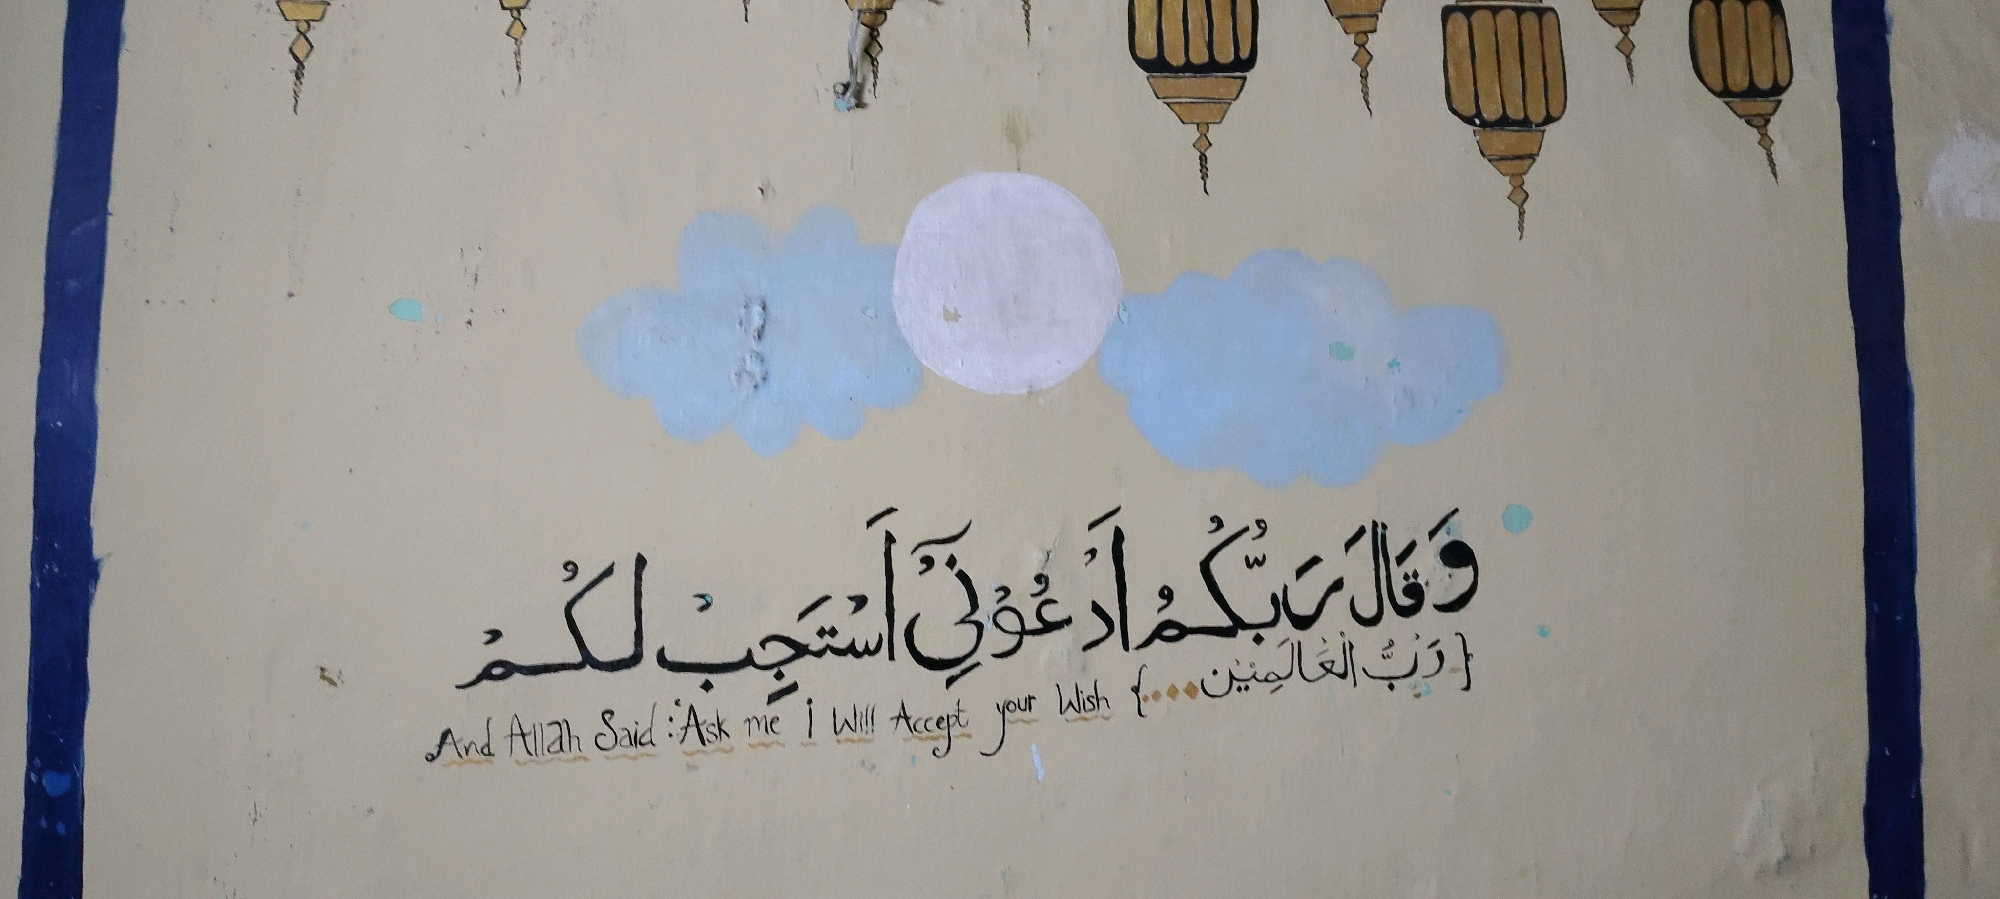 وَقَالَ رَبُّكُمُ ٱدْعُوْنِيٓ أَسْتَجِبْ لَكُمْ
{رَبُّ الْعَالَمِيْن....}
And Allah Said: "Ask me i Will Accept your Wish